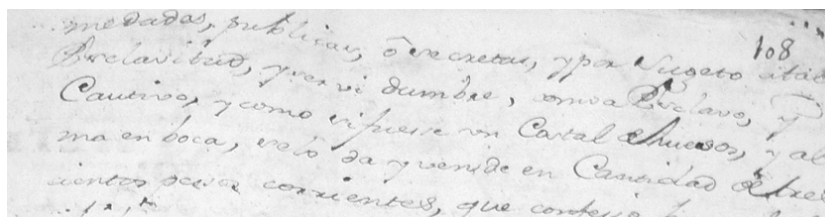 108
medadas, publicas, ó secretas, y por Sugeto atal
Esclavitud, y servidumbre, como a Esclavo, y
Cautivo, y como si fuese un Costal ehuesos, y al
ma en boca, se lo da y vende en Cantidad de tres
cientos pesos corrientes, que